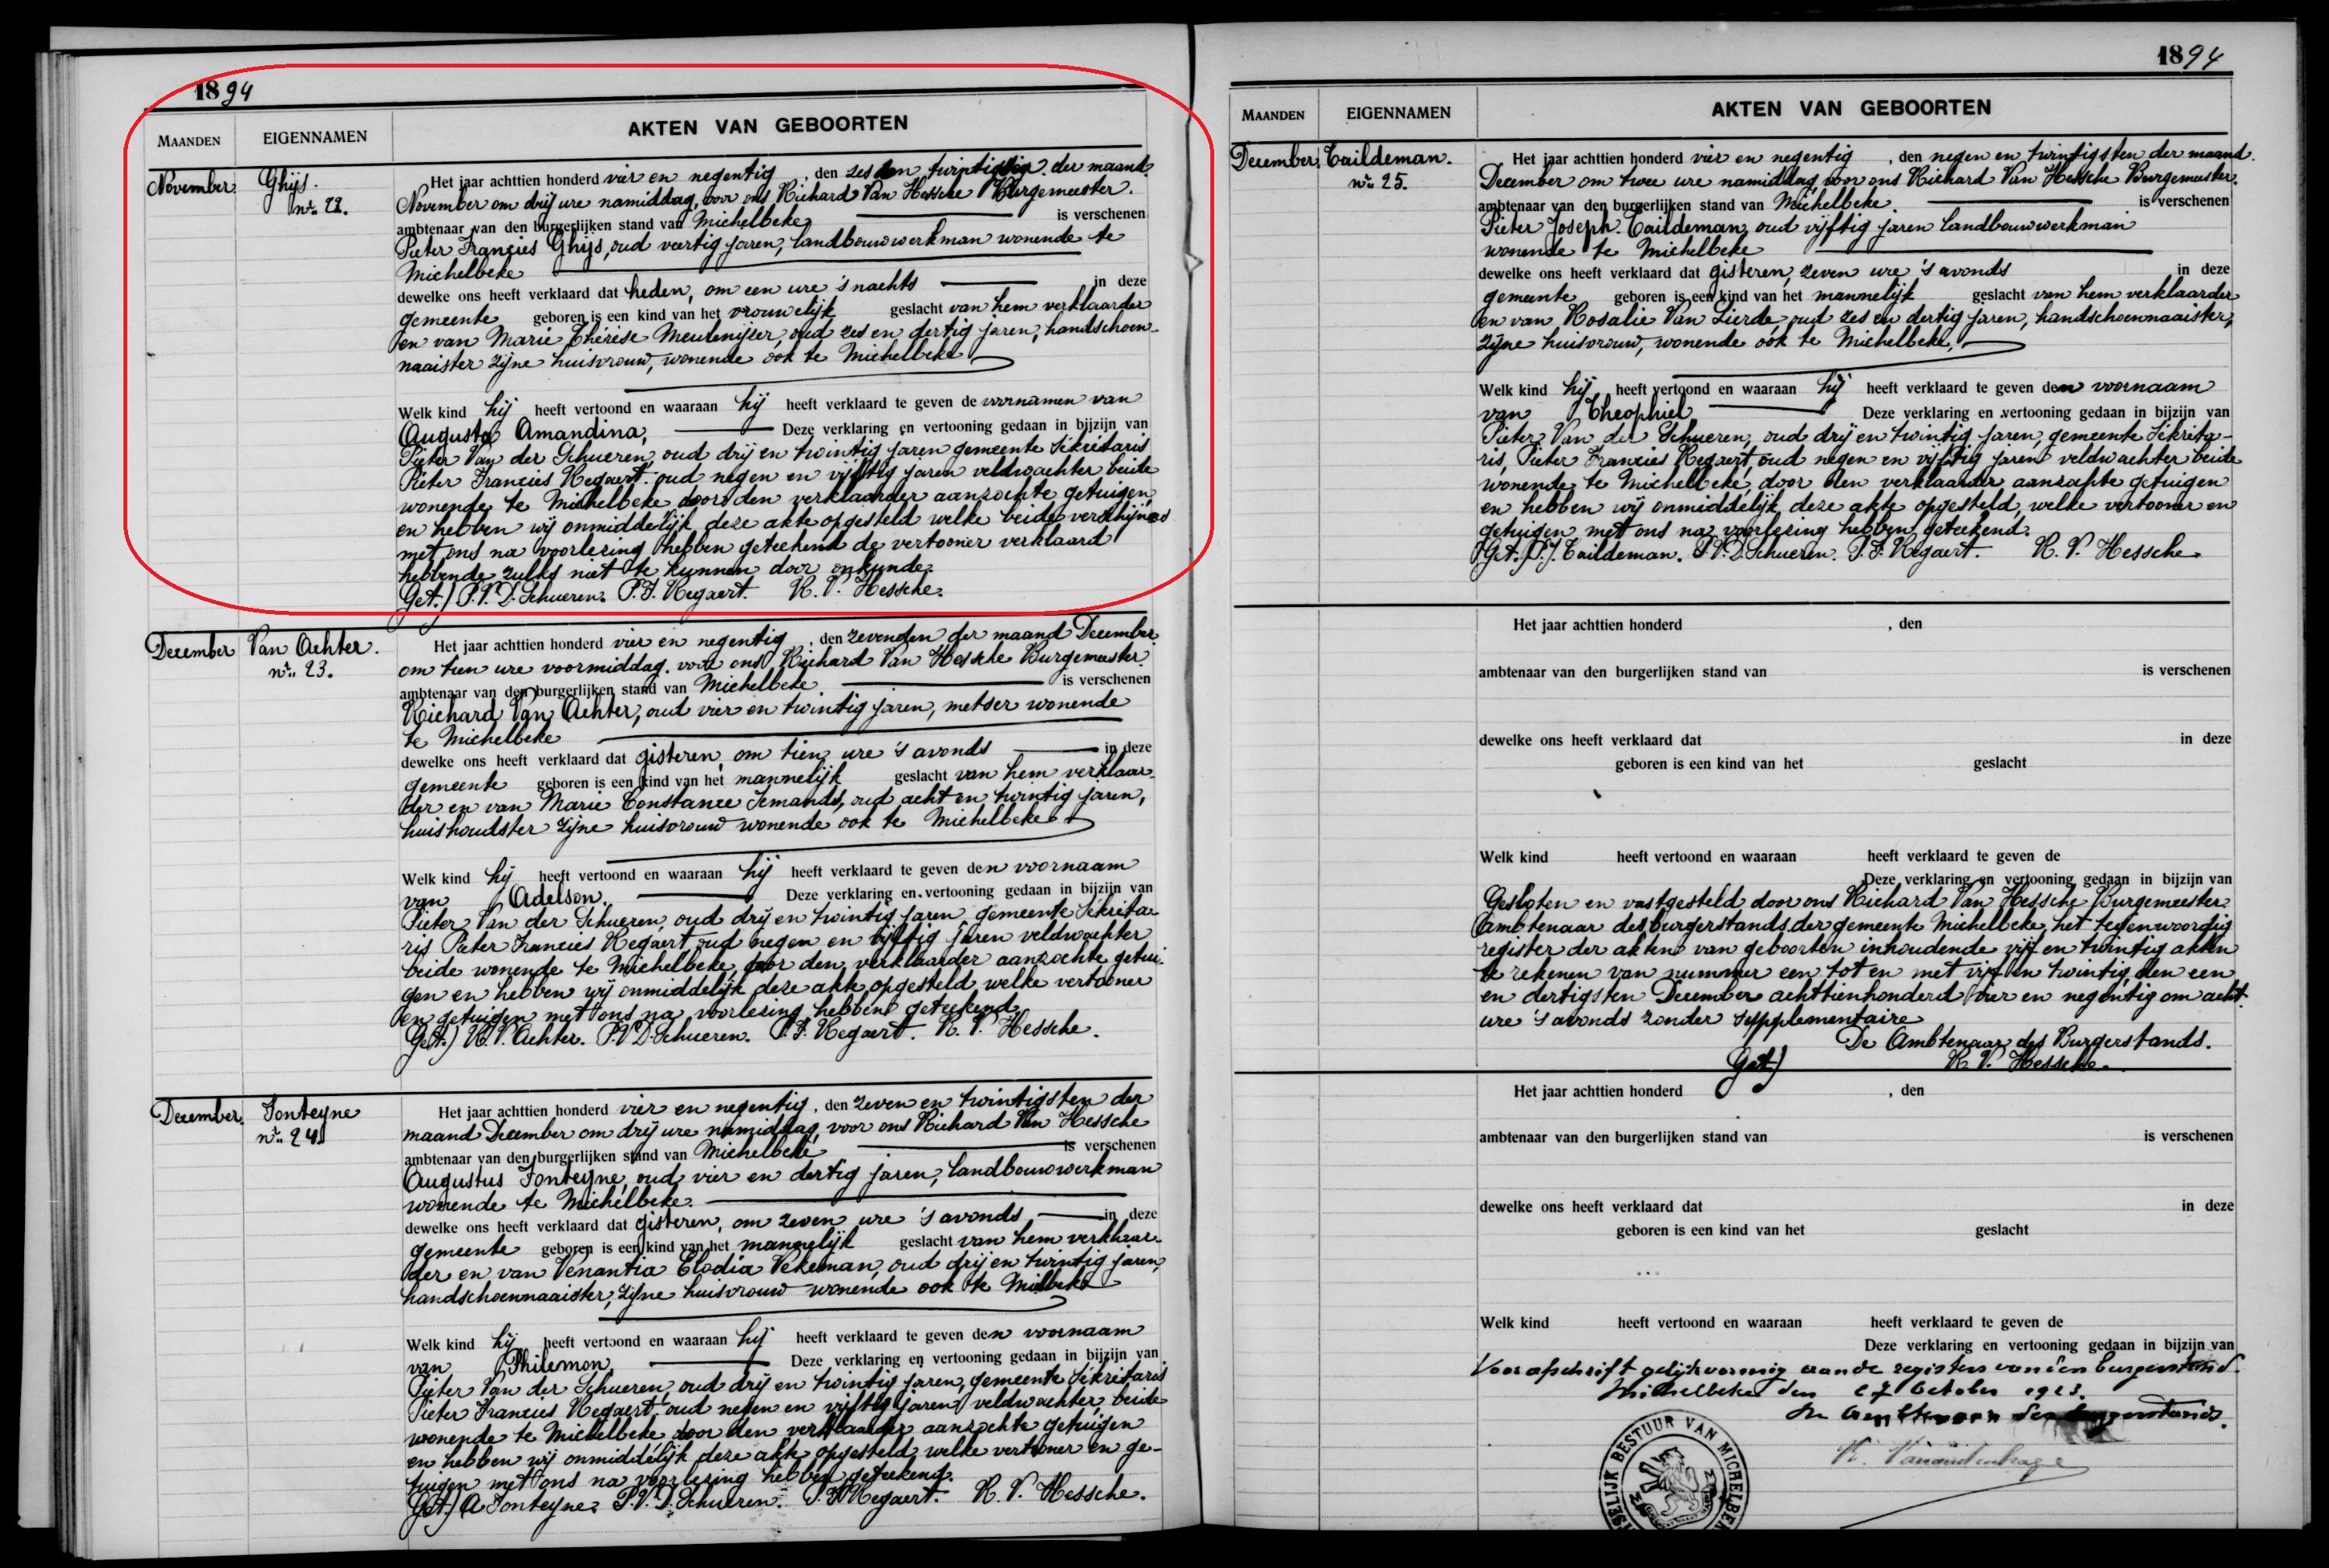 1894
MAANDEN
EIGENNAMEN
AKTEN VAN GEBOORTEN
November
Ghijs.
nr 22.
Het jaar achttien honderd vier en negentig, den zes en twintigsten der maand
November om drij ure namiddag, voor ons Richard Van Hessche Burgemeester.
ambtenaar van den burgerlijken stand van Michelbeke is verschenen
Pieter Francies Ghijs, oud veertig jaren, landbouwwerkman wonende te
Michelbeke
dewelke ons heeft verklaard dat heden, om een ure 's nachts in deze
gemeente geboren is een kind van het vrouwelijk geslacht van hem verklaarder
en van Marie Thérèse Meulenijzer, oud zes en dertig jaren, handschoen-
naaister zijne huisvrouw, wonende ook te Michelbeke
Welk kind hij heeft vertoond en waaraan hij heeft verklaard te geven de voornamen van
Augusta Amandina, Deze verklaring en vertooning gedaan in bijzijn van
Pieter Van der Schueren, oud drij en twintig jaren gemeente Sekretaris
Pieter Francies Regaert, oud negen en vijftig jaren veldwachter beide
wonende te Michelbeke door den verklaarder aanzochte getuigen
en hebben wij onmiddelijk deze akte opgesteld welke beide verschijners
met ons na voorlezing hebben geteekend de vertooner verklaard
hebbende zulks niet te kunnen door onkunde.
Get.) P.V.D. Schueren. P.F. Regaert. R.V. Hessche.
December
Van Achter.
nr 23.
Het jaar achttien honderd vier en negentig, den zevenden der maand December
om tien ure voormiddag. voor ons Richard Van Hessche Burgemeester.
ambtenaar van den burgerlijken stand van Michelbeke. is verschenen
Richard Van Achter, oud vier en twintig jaren, metser wonende
te Michelbeke
dewelke ons heeft verklaard dat gisteren, om tien ure 's avonds in deze
gemeente geboren is een kind van het mannelijk geslacht van hem verklaar-
der en van Marie Constance Temands, oud acht en twintig jaren,
huishoudster zijne huisvrouw wonende ook te Michelbeke
Welk kind hij heeft vertoond en waaraan hij heeft verklaard te geven den voornaam
van Adelson. Deze verklaring en vertooning gedaan in bijzijn van
Pieter Van der Schueren, oud drij en twintig jaren, gemeente Sekreta-
ris Pieter Francies Regaert oud negen en vijftig jaren veldwachter
beide wonende te Michelbeke, door den verklaarder aanzochte getui-
gen en hebben wij onmiddelijk deze akte opgesteld welke vertooner
en getuigen met ons na voorlezing hebben geteekend.
Get.) R.V. Achter. P.V.D. Schueren. P.F. Regaert. R.V. Hessche.
December.
Fonteyne
nr 24.
Het jaar achttien honderd vier en negentig, den zeven en twintigsten der
maand December om drij ure namiddag, voor ons Richard Van Hessche
ambtenaar van den burgerlijken stand van Michelbeke is verschenen
Augustus Fonteyne, oud vier en dertig jaren, landbouwwerkman
wonende te Michelbeke.
dewelke ons heeft verklaard dat gisteren, om zeven ure 's avonds in deze
gemeente geboren is een kind van het mannelijk geslacht van hem verklaar-
der en van Venantia Elodia Vekeman, oud drij en twintig jaren,
handschoennaaister, zijne huisvrouw wonende ook te Milbeke
Welk kind hij heeft vertoond en waaraan hij heeft verklaard te geven den voornaam
van Philemon Deze verklaring en vertooning gedaan in bijzijn van
Pieter Van der Schueren, oud drij en twintig jaren, gemeente Sekretaris
Pieter Francies Regaert. oud negen en vijftig jaren veldwachter beide
wonende te Michelbeke door den verklaarder aanzochte getuigen
en hebben wij onmiddelijk deze akte opgesteld welke vertooner en ge-
tuigen met ons na voorlezing hebben geteekend.
Get.) A Fonteyne. P.V.D. Schueren. P.F. Regaert. R.V. Hessche.
1894
MAANDEN
EIGENNAMEN
AKTEN VAN GEBOORTEN
December.
Taildeman.
nr 25.
Het jaar achttien honderd vier en negentig, den negen en twintigsten der maand
December om twee ure namiddag, voor ons Richard Van Hessche Burgemeester.
ambtenaar van den burgerlijken stand van Michelbeke. is verschenen
Pieter Joseph Taildeman, oud vijftig jaren landbouwwerkman
wonende te Michelbeke
dewelke ons heeft verklaard dat gisteren, zeven ure 's avonds in deze
gemeente geboren is een kind van het mannelijk geslacht van hem verklaarder
en van Rosalie Van Lierde, oud zes en dertig jaren, handschoennaaister,
zijne huisvrouw, wonende ook te Michelbeke,
Welk kind hij heeft vertoond en waaraan hij heeft verklaard te geven den voornaam
van Theophiel Deze verklaring en vertooning gedaan in bijzijn van
Pieter Van der Schueren, oud drij en twintig jaren, gemeente Sekreta-
ris, Pieter Francies Regaert, oud negen en vijftig jaren veldwachter beide
wonende te Michelbeke, door den verklaarder aanzochte getuigen
en hebben wij onmiddelijk deze akte opgesteld, welke vertooner en
getuigen met ons na voorlezing hebben geteekend.
Get.) P.J. Taildeman. P.V.D. Schueren. P.F. Regaert. R.V. Hessche.
Het jaar achttien honderd , den
ambtenaar van den burgerlijken stand van is verschenen
dewelke ons heeft verklaard dat in deze
geboren is een kind van het geslacht
Welk kind heeft vertoond en waaraan heeft verklaard te geven de
Deze verklaring en vertooning gedaan in bijzijn van
Gesloten en vastgesteld door ons Richard Van Hessche Burgemeester
Ambtenaar des burgerstands der gemeente Michelbeke, het tegenwoordig
register der akten van geboorten inhoudende vijf en twintig akten
te rekenen van nummer een tot en met vijf en twintig, den een
en dertigsten December achttienhonderd vier en negentig om acht
ure 's avonds zonder supplementaire
De Ambtenaar des Burgerstands.
Get.) R.V. Hessche.
Het jaar achttien honderd , den
ambtenaar van den burgerlijken stand van is verschenen
dewelke ons heeft verklaard dat in deze
geboren is een kind van het geslacht
Welk kind heeft vertoond en waaraan heeft verklaard te geven de
Deze verklaring en vertooning gedaan in bijzijn van
Voor afschrift gelijkvormig aan de registers van den burgerstand.
Michelbeke den 27 October 1923.
De Ambtenaar des burgerstands.
BESTUUR VAN MICHELBEKE